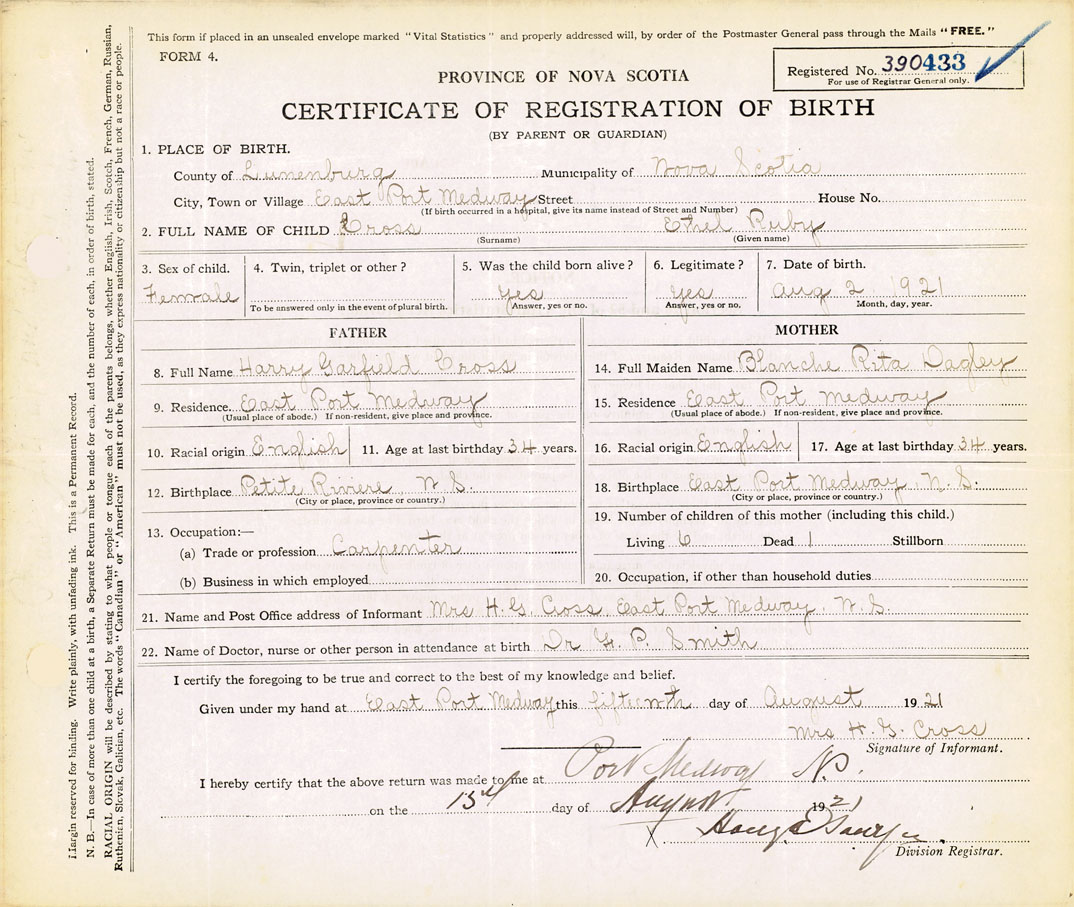 This form if placed in an unsealed envelope marked "Vital Statistics" and properly addressed will, by order of the Postmaster General pass through the Mails "FREE."
FORM 4.
Registered No. 390433
For use of Registrar General only.
PROVINCE OF NOVA SCOTIA
CERTIFICATE OF REGISTRATION OF BIRTH
(BY PARENT OR GUARDIAN)
1. PLACE OF BIRTH.
County of Lunenburg Municipality of Nova Scotia
City, Town or Village East Port Medway Street House No.
(If birth occurred in a hospital, give its name instead of Street and Number)
2. FULL NAME OF CHILD Cross Ethel Ruby
(Surname) (Given name)
3. Sex of child. 4. Twin, triplet or other? 5. Was the child born alive? 6. Legitimate? 7. Date of birth.
Female Yes Yes Aug 2 1921
To be answered only in the event of plural birth. Answer, yes or no. Answer, yes or no. Month, day, year.
FATHER
8. Full Name Harry Garfield Cross
9. Residence East Port Medway
(Usual place of abode.) If non-resident, give place and province.
10. Racial origin English 11. Age at last birthday 34 years.
12. Birthplace Petite Riviere, N.S.
(City or place, province or country.)
13. Occupation:—
(a) Trade or profession Carpenter
(b) Business in which employed
MOTHER
14. Full Maiden Name Blanche Rita Dagley
15. Residence East Port Medway
(Usual place of abode.) If non-resident, give place and province.
16. Racial origin English 17. Age at last birthday 34 years.
18. Birthplace East Port Medway, N.S.
(City or place, province or country.)
19. Number of children of this mother (including this child.)
Living 6 Dead 1 Stillborn
20. Occupation, if other than household duties
21. Name and Post Office address of Informant Mrs H.G. Cross East Port Medway, N.S.
22. Name of Doctor, nurse or other person in attendance at birth Dr G. P. Smith
I certify the foregoing to be true and correct to the best of my knowledge and belief.
Given under my hand at East Port Medway this fifteenth day of August 1921
Mrs H. G. Cross
Signature of Informant.
I hereby certify that the above return was made to me at Port Medway N.S.
on the 15th day of August 1921
Division Registrar.
Margin reserved for binding. Write plainly, with unfading ink. This is a Permanent Record.
N. B.—In case of more than one child at a birth, a Separate Return must be made for each, and the number of each, in order of birth, stated.
RACIAL ORIGIN will be described by stating to what people or tongue each of the parents belongs, whether English, Irish, Scotch, French, German, Russian,
Ruthenian, Slovak, Galician, etc. The words "Canadian" or "American" must not be used, as they express nationality or citizenship but not a race or people.